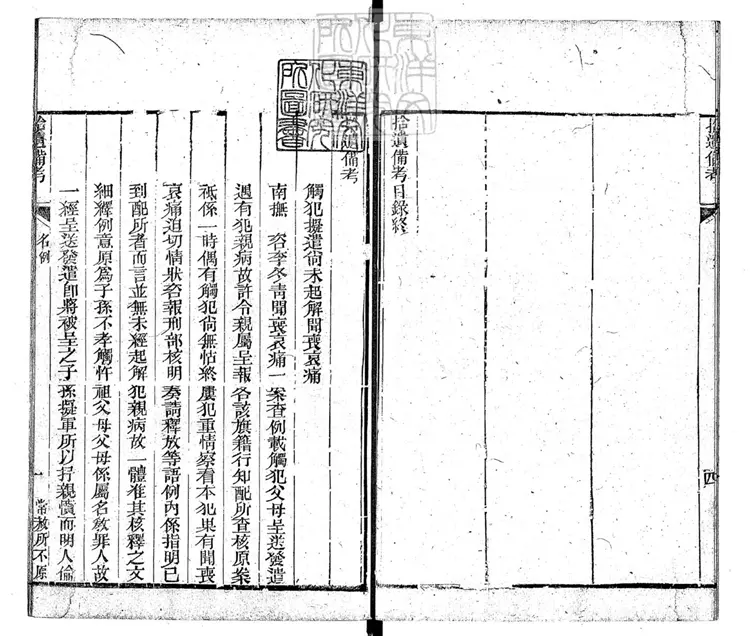 拾遺備考
四
拾遺備考目錄終
東洋文
化研究
所圖書
遺備考
觸犯擬遣尚未起解聞喪哀痛
南撫 咨李冬青聞喪哀痛一案查例載觸犯父母呈送發遣
遇有犯親病故許令親屬呈報各該旗籍行知配所查核原案
祗係一時偶有觸犯尚無怙終屢犯重情察看本犯果有聞喪
哀痛迫切情狀咨報刑部核明奏請釋放等語例內係指明已
到配所者而言並無未經起解犯親病故一體准其核釋之文
細繹例意原爲子孫不孝觸忤祖父母父母係屬名教罪人故
一經呈送發遣卽將被呈之子孫擬軍所以抒親憤而明人倫
拾遺備考
名例
一
常赦所不原